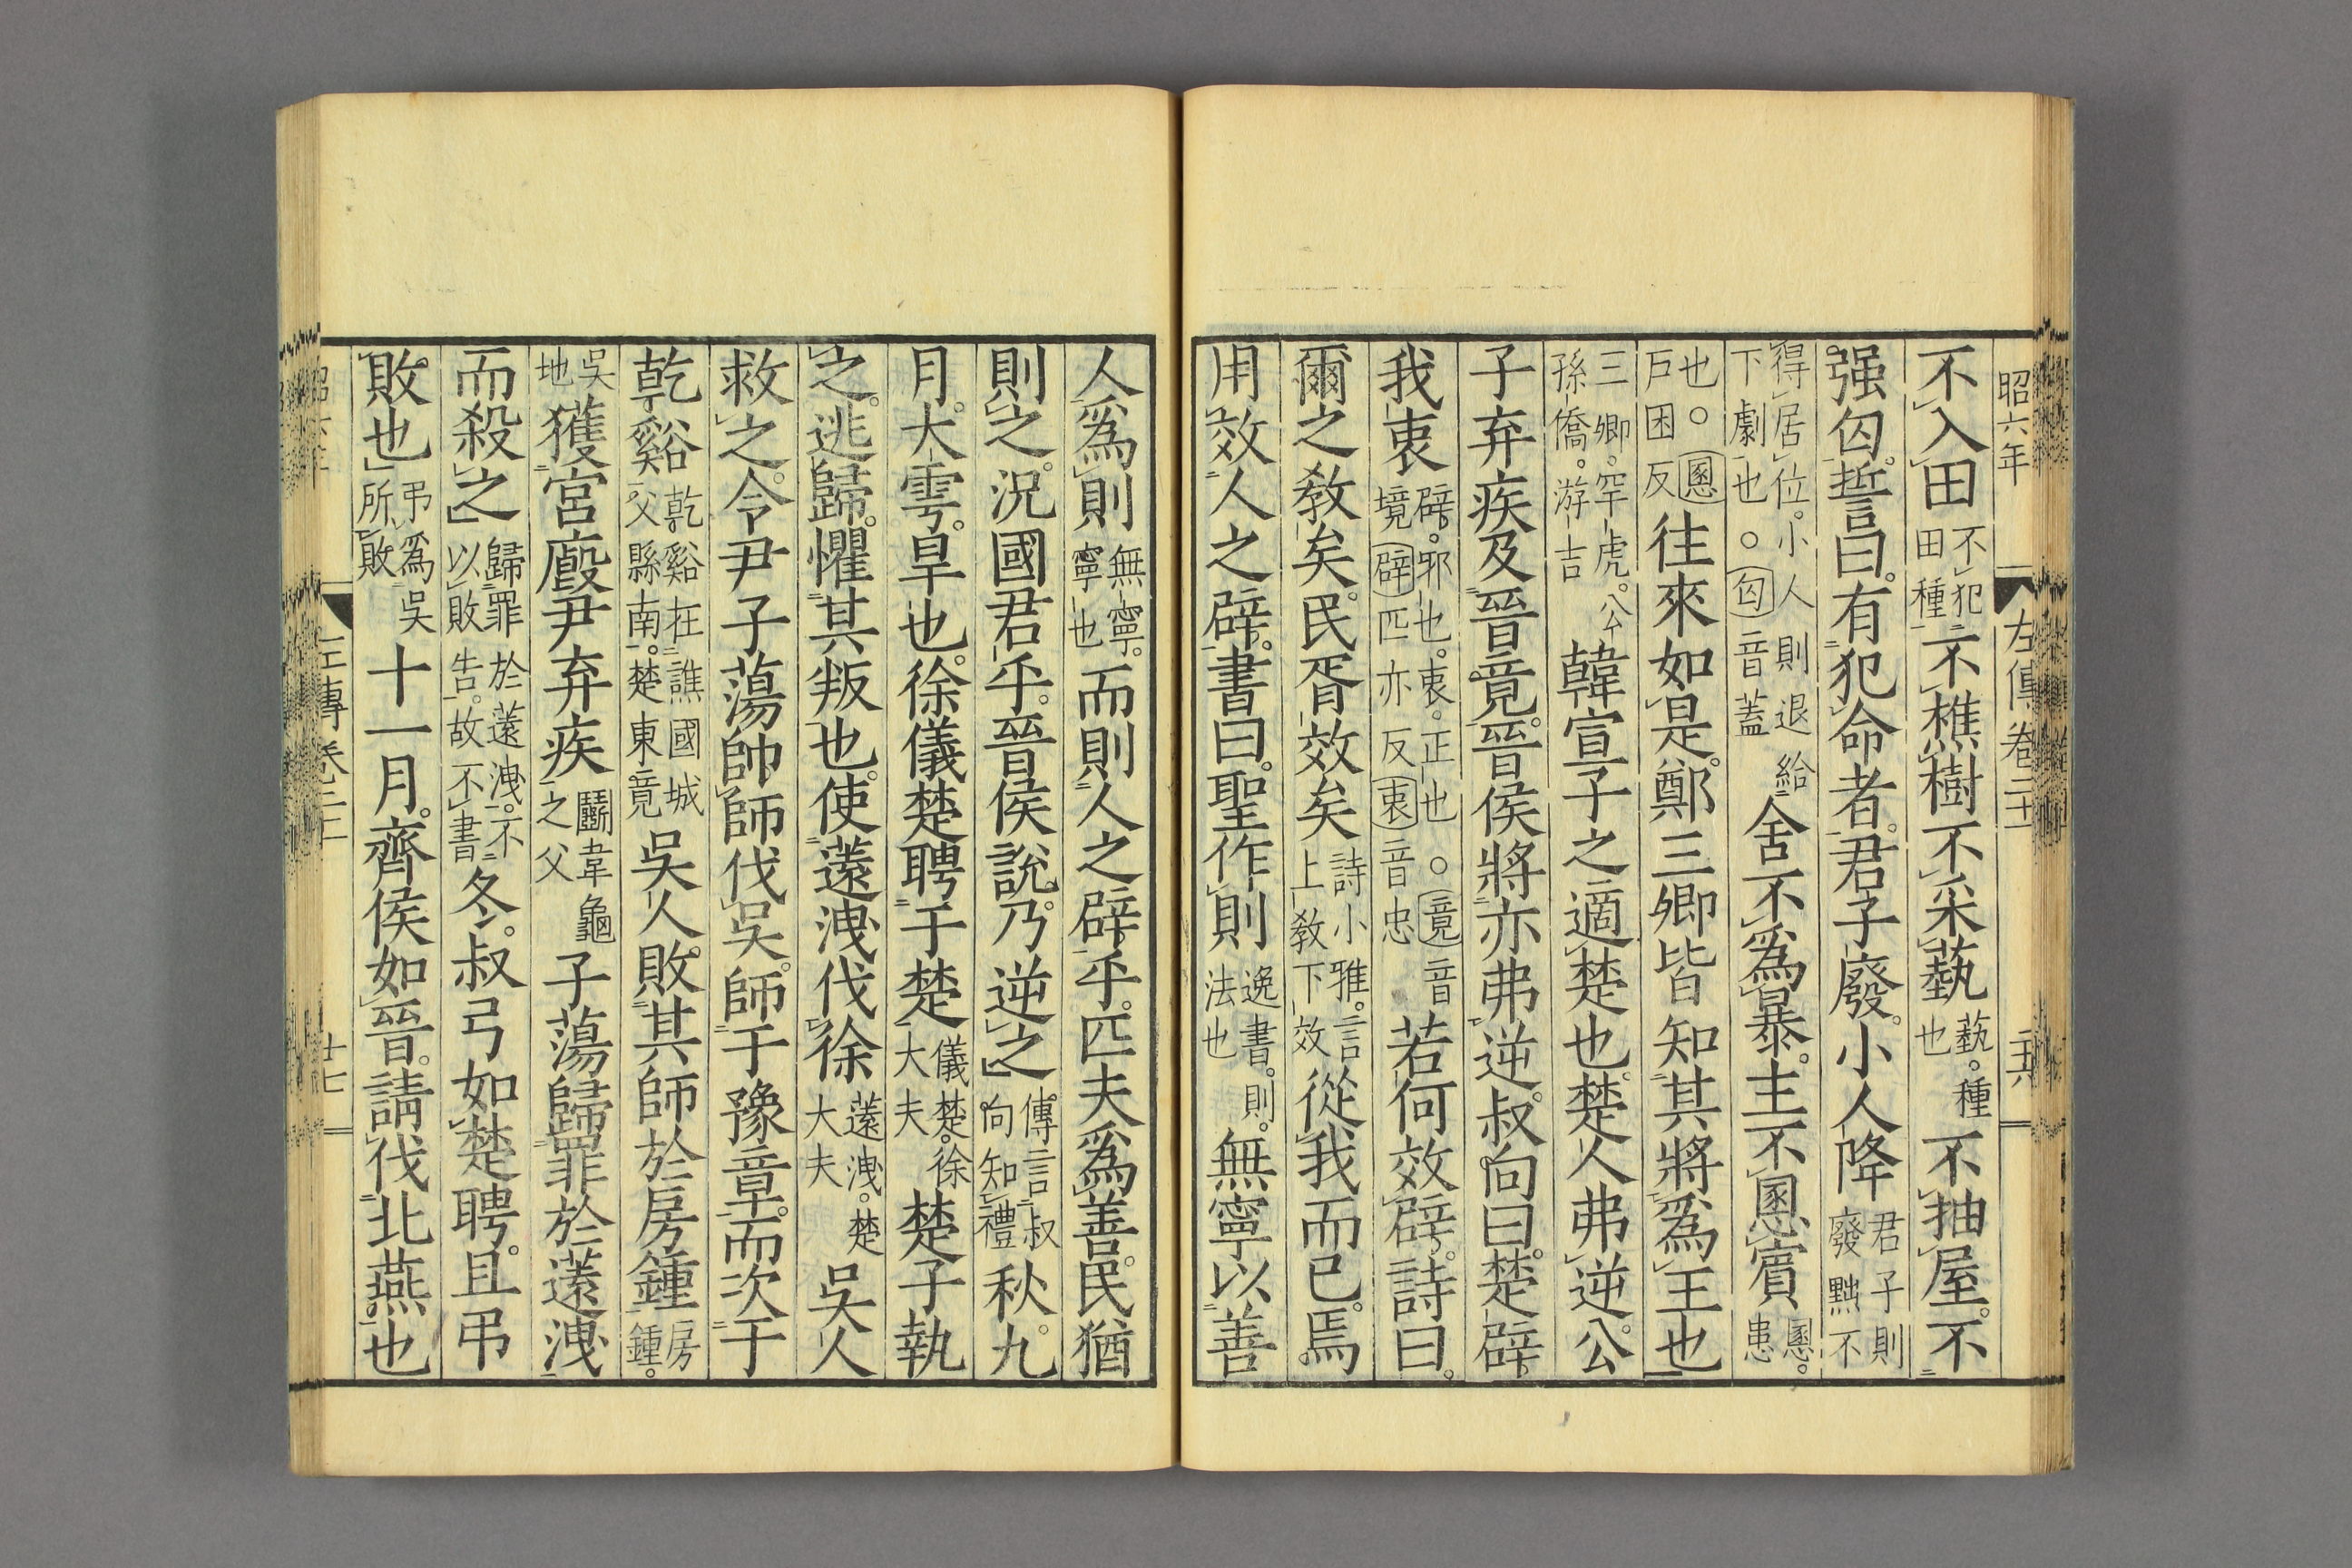 昭六年 左傳卷二十一 二十六
不入田不犯田種不樵樹不采蓺蓺種也不抽屋不
强匄誓曰有犯命者君子廢小人降君子則廢黜不
得居位小人則退給下劇也○匄音蓋舍不爲暴主不慁賓慁患
也○慁戶困反往來如是鄭三卿皆知其將爲王也
三卿罕虎公孫僑游吉韓宣子之適楚也楚人弗逆公
子弃疾及晉竟晉侯將亦弗逆叔向曰楚辟
我衷辟邪也衷正也○竟音境辟匹亦反衷音忠若何效辟詩曰
爾之教矣民胥效矣詩小雅言上教下效從我而已焉
用效人之辟書曰聖作則逸書則法也無寧以善
人爲則無寧寧也而則人之辟乎匹夫爲善民猶
則之況國君乎晉侯說乃逆之傳言叔向知禮秋九
月大雩旱也徐儀楚聘于楚儀楚徐大夫楚子執
之逃歸懼其叛也使薳洩伐徐薳洩楚大夫吳人
救之令尹子蕩帥師伐吳師于豫章而次于
乾谿乾谿在譙國城父縣南楚東竟吳人敗其師於房鍾房鍾
吳地獲宮廄尹弃疾鬬韋龜之父子蕩歸罪於薳洩
而殺之歸罪於薳洩不以敗告故不書冬叔弓如楚聘且弔
敗也弔爲吳所敗十一月齊侯如晉請伐北燕也
昭六年 左傳卷二十一 二十七